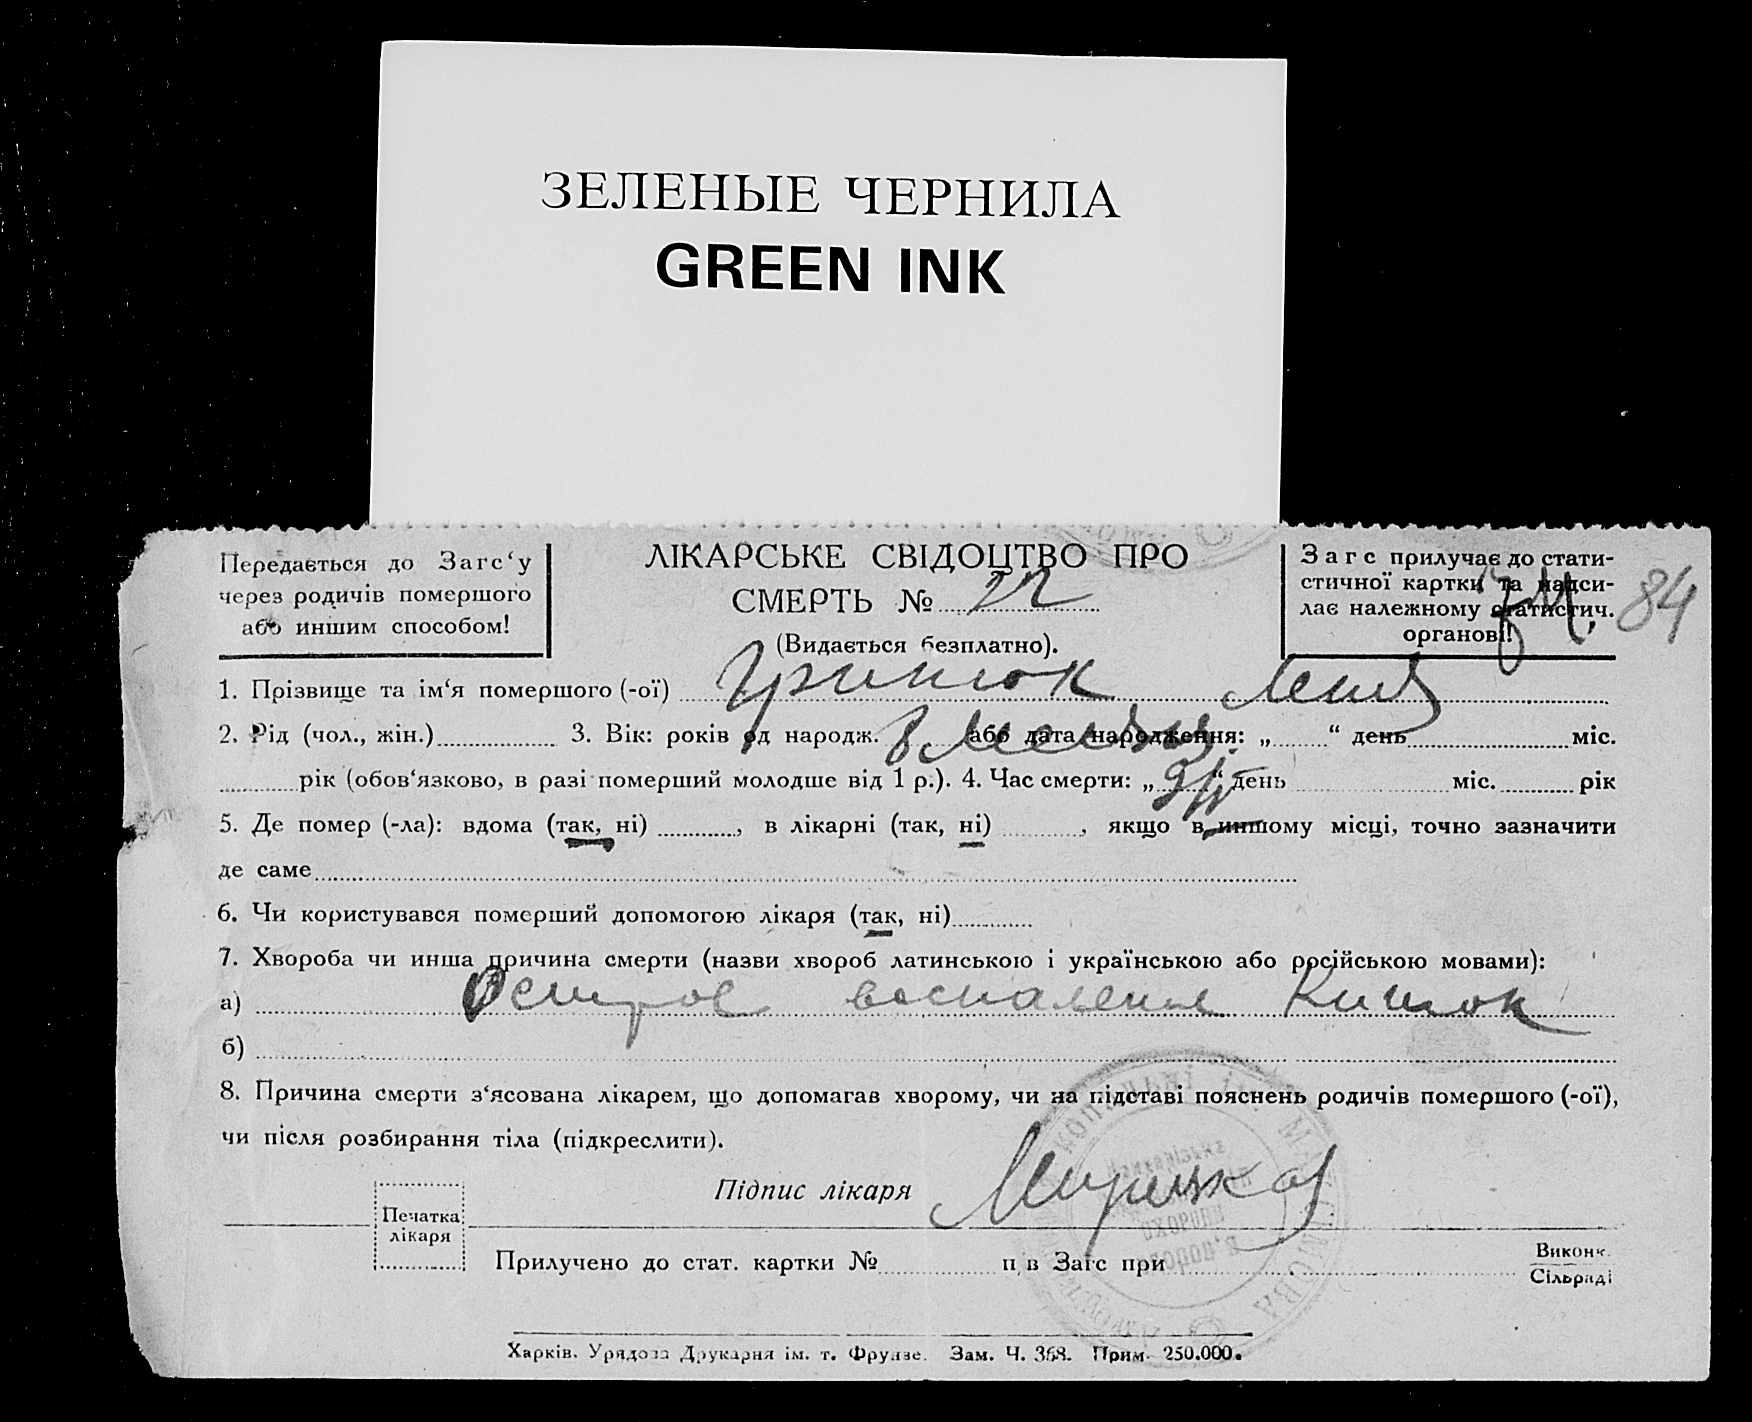 ЗЕЛЕНЫЕ ЧЕРНИЛА
GREEN INK
Передається до Загс‘у
через родичів помершого
або иншим способом!
ЛІКАРСЬКЕ СВІДОЦТВО ПРО
СМЕРТЬ № 22
(Видається безплатно).
Загс прилучає до стати-
стичної картки та надси-
лає належному статистич.
органові!
84
1. Прізвище та ім‘я помершого (-ої)
2. Рід (чол., жін.) 3. Вік: років од народж. 8 або дата народження: „ “ день міс.
рік (обов‘язково, в разі померший молодше від 1 р.). 4. Час смерти: „ “ день міс. рік
5. Де помер (-ла): вдома (так, ні) , в лікарні (так, ні) , якщо в иншому місці, точно зазначити
де саме
6. Чи користувався померший допомогою лікаря (так, ні)
7. Хвороба чи инша причина смерти (назви хвороб латинською і українською або російською мовами):
а) Острое воспаление кишок
б)
8. Причина смерти з‘ясована лікарем, що допомагав хворому, чи на підставі пояснень родичів помершого (-ої),
чи після розбирання тіла (підкреслити).
Підпис лікаря
Печатка
лікаря
Прилучено до стат. картки № п, в Загс при Виконк.
Сільраді
Харків. Урядова Друкарня ім. т. Фрунзе. Зам. Ч. 368. Прим. 250.000.